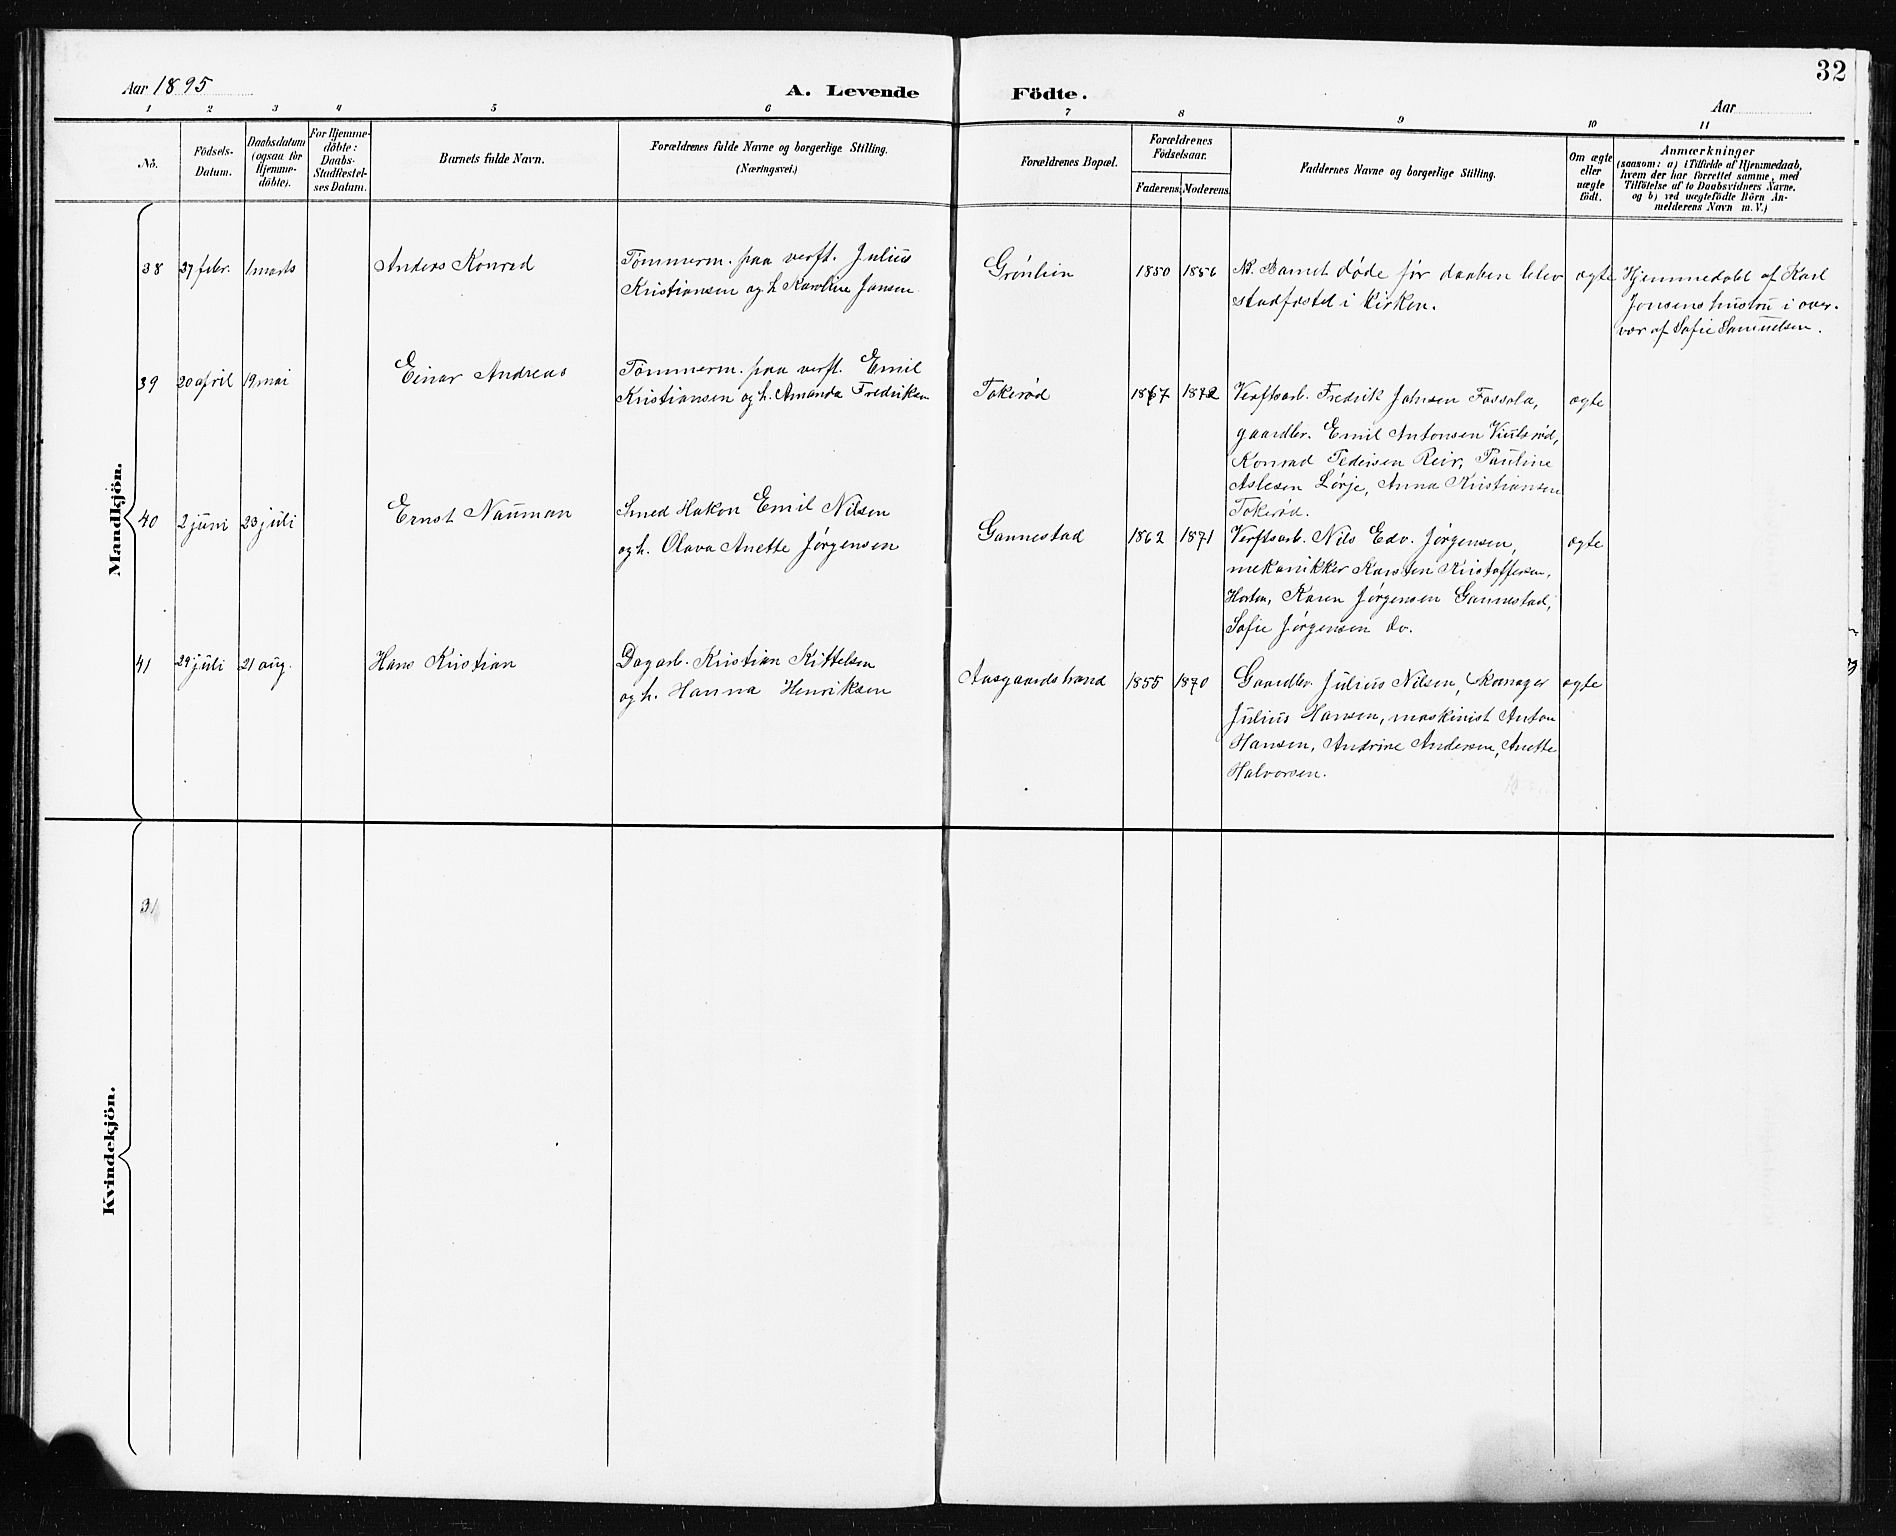 32
Aar 1895
A. Levende Födte.
Aar
1 2 3 4 5 6 7 8 9 10 11
Nô.
Födsels-Datum.
Daabsdatum (ogsaa for Hjemme-döbte).
For Hjemme-döbte: Daabs-Stadfæstel-ses Datum.
Barnets fulde Navn.
Forældrenes fulde Navne og borgerlige Stilling.
(Næringsvei.)
Forældrenes Bopæl.
Forældrenes Födselsaar.
Faderens. Moderens.
Faddernes Navne og borgerlige Stilling.
Om ægte eller uægte födt.
Anmærkninger
(saasom: a) i Tilfælde af Hjemmedaab,
hvem der har forrettet samme, med
Tilföielse af to Daabsvidners Navne.
og b) ved uægtefödte Börn An-
melderens Navn m. V.)
Mandkjön.
38 27 febr. 1 marts Anders Konrad
Tømmerm. paa verft. Julius
Kristiansen og h. Karoline Jansen
Grønlien 1850 1856
NB. Barnet døde før daaben blev
stadfæstet i kirken.
ægte
Hjemmedøbt af Karl
Jensens hustru i over-
vær af Sofie Samuelsen.
39 20 april 19 mai Einar Andreas
Tømmerm. paa verft. Emil
Kristiansen og h. Amanda Fredriksen
Tokerød 1867 1872
Verftsarb. Fredrik Johnsen Fossola,
gaardbr. Emil Antonsen
Konrad Pedersen Reir, Pauline
Aslesen Lørje, Anna Kristiansen
Tokerød.
ægte
40 2 juni 23 juli Ernst Nauman
Smed Hakon Emil Nilsen
og h. Olava Anette Jørgensen
Gannestad 1862 1871
Verftsarb. Nils Edv. Jørgensen,
mekanikker Karsten Kristoffersen,
Horten, Karen Jørgensen Gannestad,
Sofie Jørgensen do.
ægte
41 29 juli 21 aug. Hans Kristian
Dagarb. Kristian Kittelsen
og h. Hanna Henriksen
Aasgaardstrand 1855 1870
Gaardbr. Julius Nilsen, skomager
Julius Hansen, maskinist Anton
Hansen, Andrine Andersen, Anette
Halvorsen.
ægte
Kvindekjön.
31